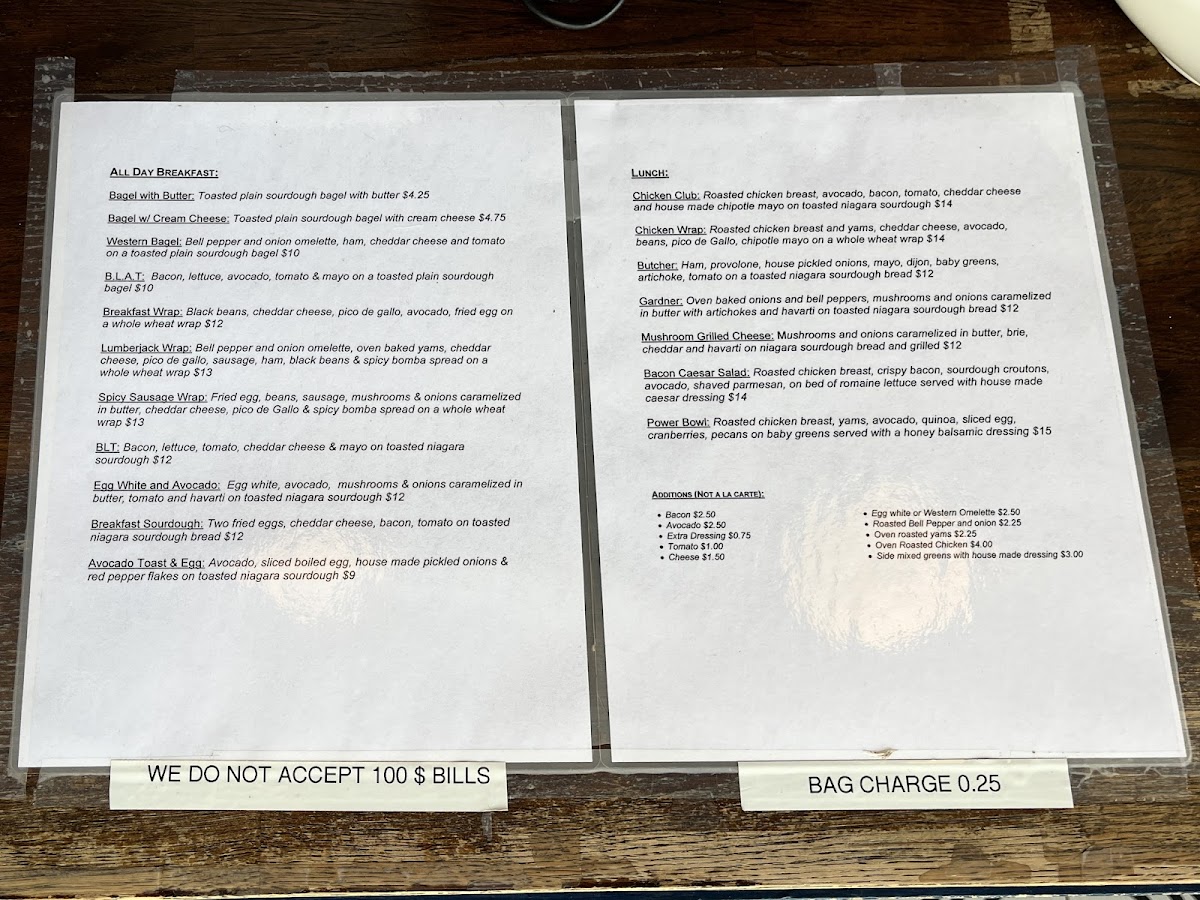 ALL DAY BREAKFAST:
Bagel with Butter: Toasted plain sourdough bagel with butter $4.25
Bagel w/ Cream Cheese: Toasted plain sourdough bagel with cream cheese $4.75
Western Bagel: Bell pepper and onion omelette, ham, cheddar cheese and tomato
on a toasted plain sourdough bagel $10
B.L.A.T: Bacon, lettuce, avocado, tomato & mayo on a toasted plain sourdough
bagel $10
Breakfast Wrap: Black beans, cheddar cheese, pico de gallo, avocado, fried egg on
a whole wheat wrap $12
Lumberjack Wrap: Bell pepper and onion omelette, oven baked yams, cheddar
cheese, pico de gallo, sausage, ham, black beans & spicy bomba spread on a
whole wheat wrap $13
Spicy Sausage Wrap: Fried egg, beans, sausage, mushrooms & onions caramelized
in butter, cheddar cheese, pico de Gallo & spicy bomba spread on a whole wheat
wrap $13
BLT: Bacon, lettuce, tomato, cheddar cheese & mayo on toasted niagara
sourdough $12
Egg White and Avocado: Egg white, avocado, mushrooms & onions caramelized in
butter, tomato and havarti on toasted niagara sourdough $12
Breakfast Sourdough: Two fried eggs, cheddar cheese, bacon, tomato on toasted
niagara sourdough bread $12
Avocado Toast & Egg: Avocado, sliced boiled egg, house made pickled onions &
red pepper flakes on toasted niagara sourdough $9
WE DO NOT ACCEPT 100 $ BILLS
LUNCH:
Chicken Club: Roasted chicken breast, avocado, bacon, tomato, cheddar cheese
and house made chipotle mayo on toasted niagara sourdough $14
Chicken Wrap: Roasted chicken breast and yams, cheddar cheese, avocado,
beans, pico de Gallo, chipotle mayo on a whole wheat wrap $14
Butcher: Ham, provolone, house pickled onions, mayo, dijon, baby greens,
artichoke, tomato on a toasted niagara sourdough bread $12
Gardner: Oven baked onions and bell peppers, mushrooms and onions caramelized
in butter with artichokes and havarti on toasted niagara sourdough bread $12
Mushroom Grilled Cheese: Mushrooms and onions caramelized in butter, brie,
cheddar and havarti on niagara sourdough bread and grilled $12
Bacon Caesar Salad: Roasted chicken breast, crispy bacon, sourdough croutons,
avocado, shaved parmesan, on bed of romaine lettuce served with house made
caesar dressing $14
Power Bowl: Roasted chicken breast, yams, avocado, quinoa, sliced egg,
cranberries, pecans on baby greens served with a honey balsamic dressing $15
ADDITIONS (NOT A LA CARTE):
• Bacon $2.50
• Avocado $2.50
• Extra Dressing $0.75
• Tomato $1.00
• Cheese $1.50
• Egg white or Western Omelette $2.50
• Roasted Bell Pepper and onion $2.25
• Oven roasted yams $2.25
• Oven Roasted Chicken $4.00
• Side mixed greens with house made dressing $3.00
BAG CHARGE 0.25